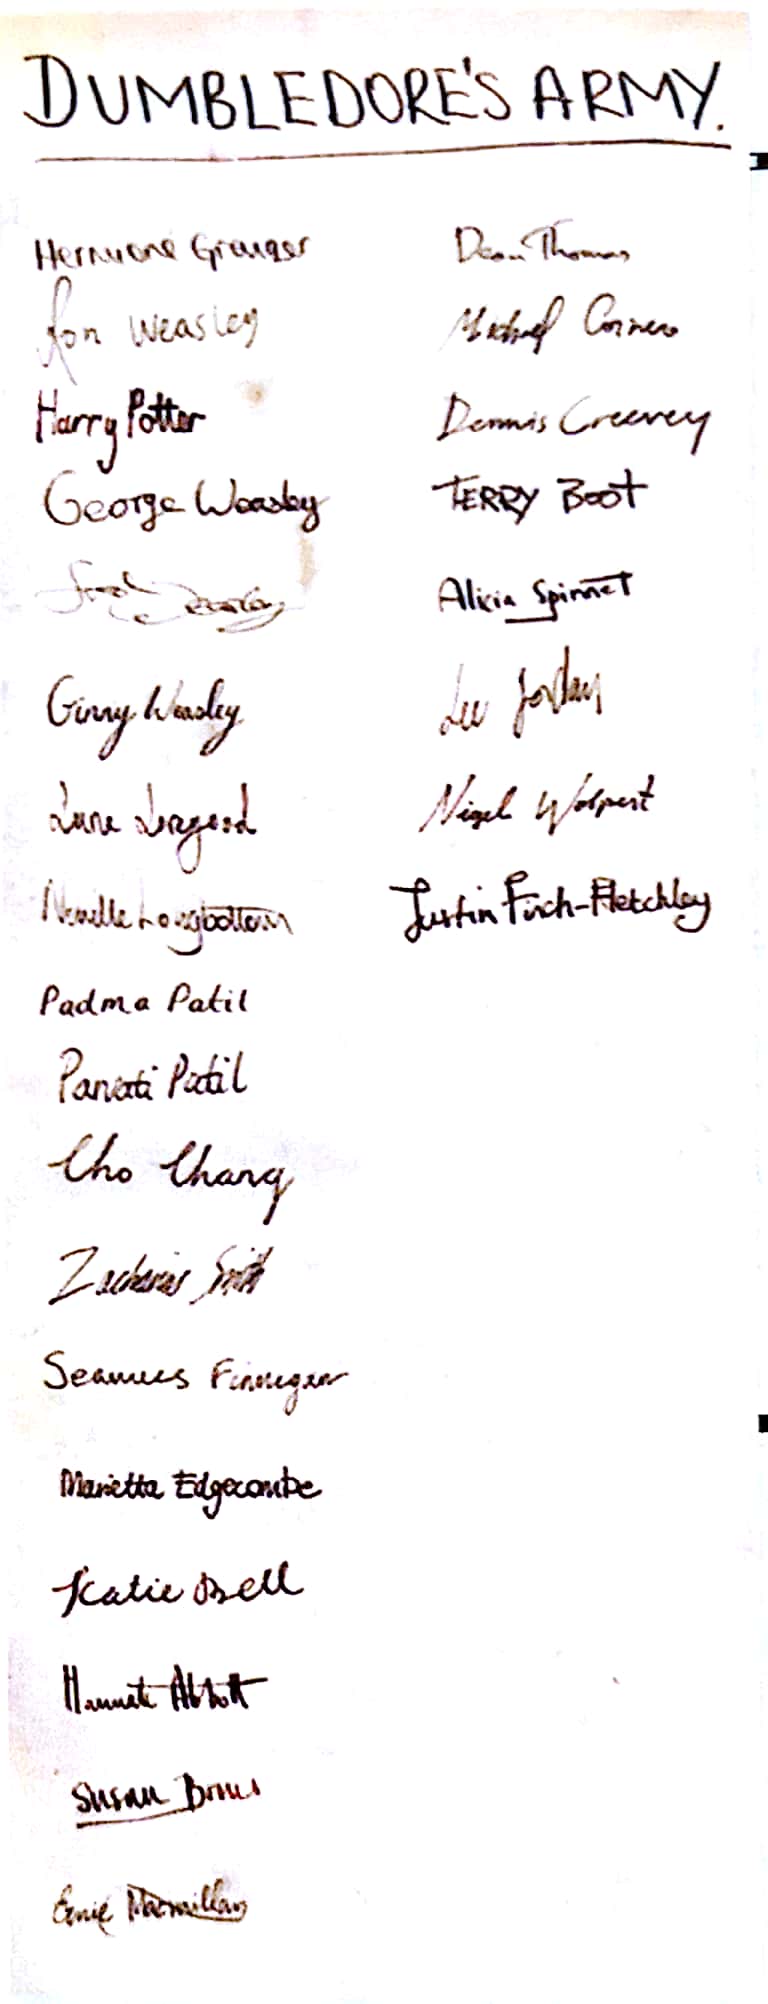 DUMBLEDORE'S ARMY.
Hermione Granger
Ron Weasley
Harry Potter
George Weasley
Fred Weasley
Ginny Weasley
Luna Lovgood
Neville Longbottom
Padma Patil
Parvati Patil
Cho Chang
Zacharias Smith
Seamus Finnegan
Marietta Edgecombe
Katie Bell
Hannah Abbott
Susan Bones
Ernie Macmillan
Dean Thomas
Michael Corner
Dennis Creevey
TERRY BOOT
Alicia Spinnet
Lee Jordan
Nigel Wolpert
Justin Finch-Fletchley